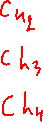 CH₂
Ch₃
Ch₄